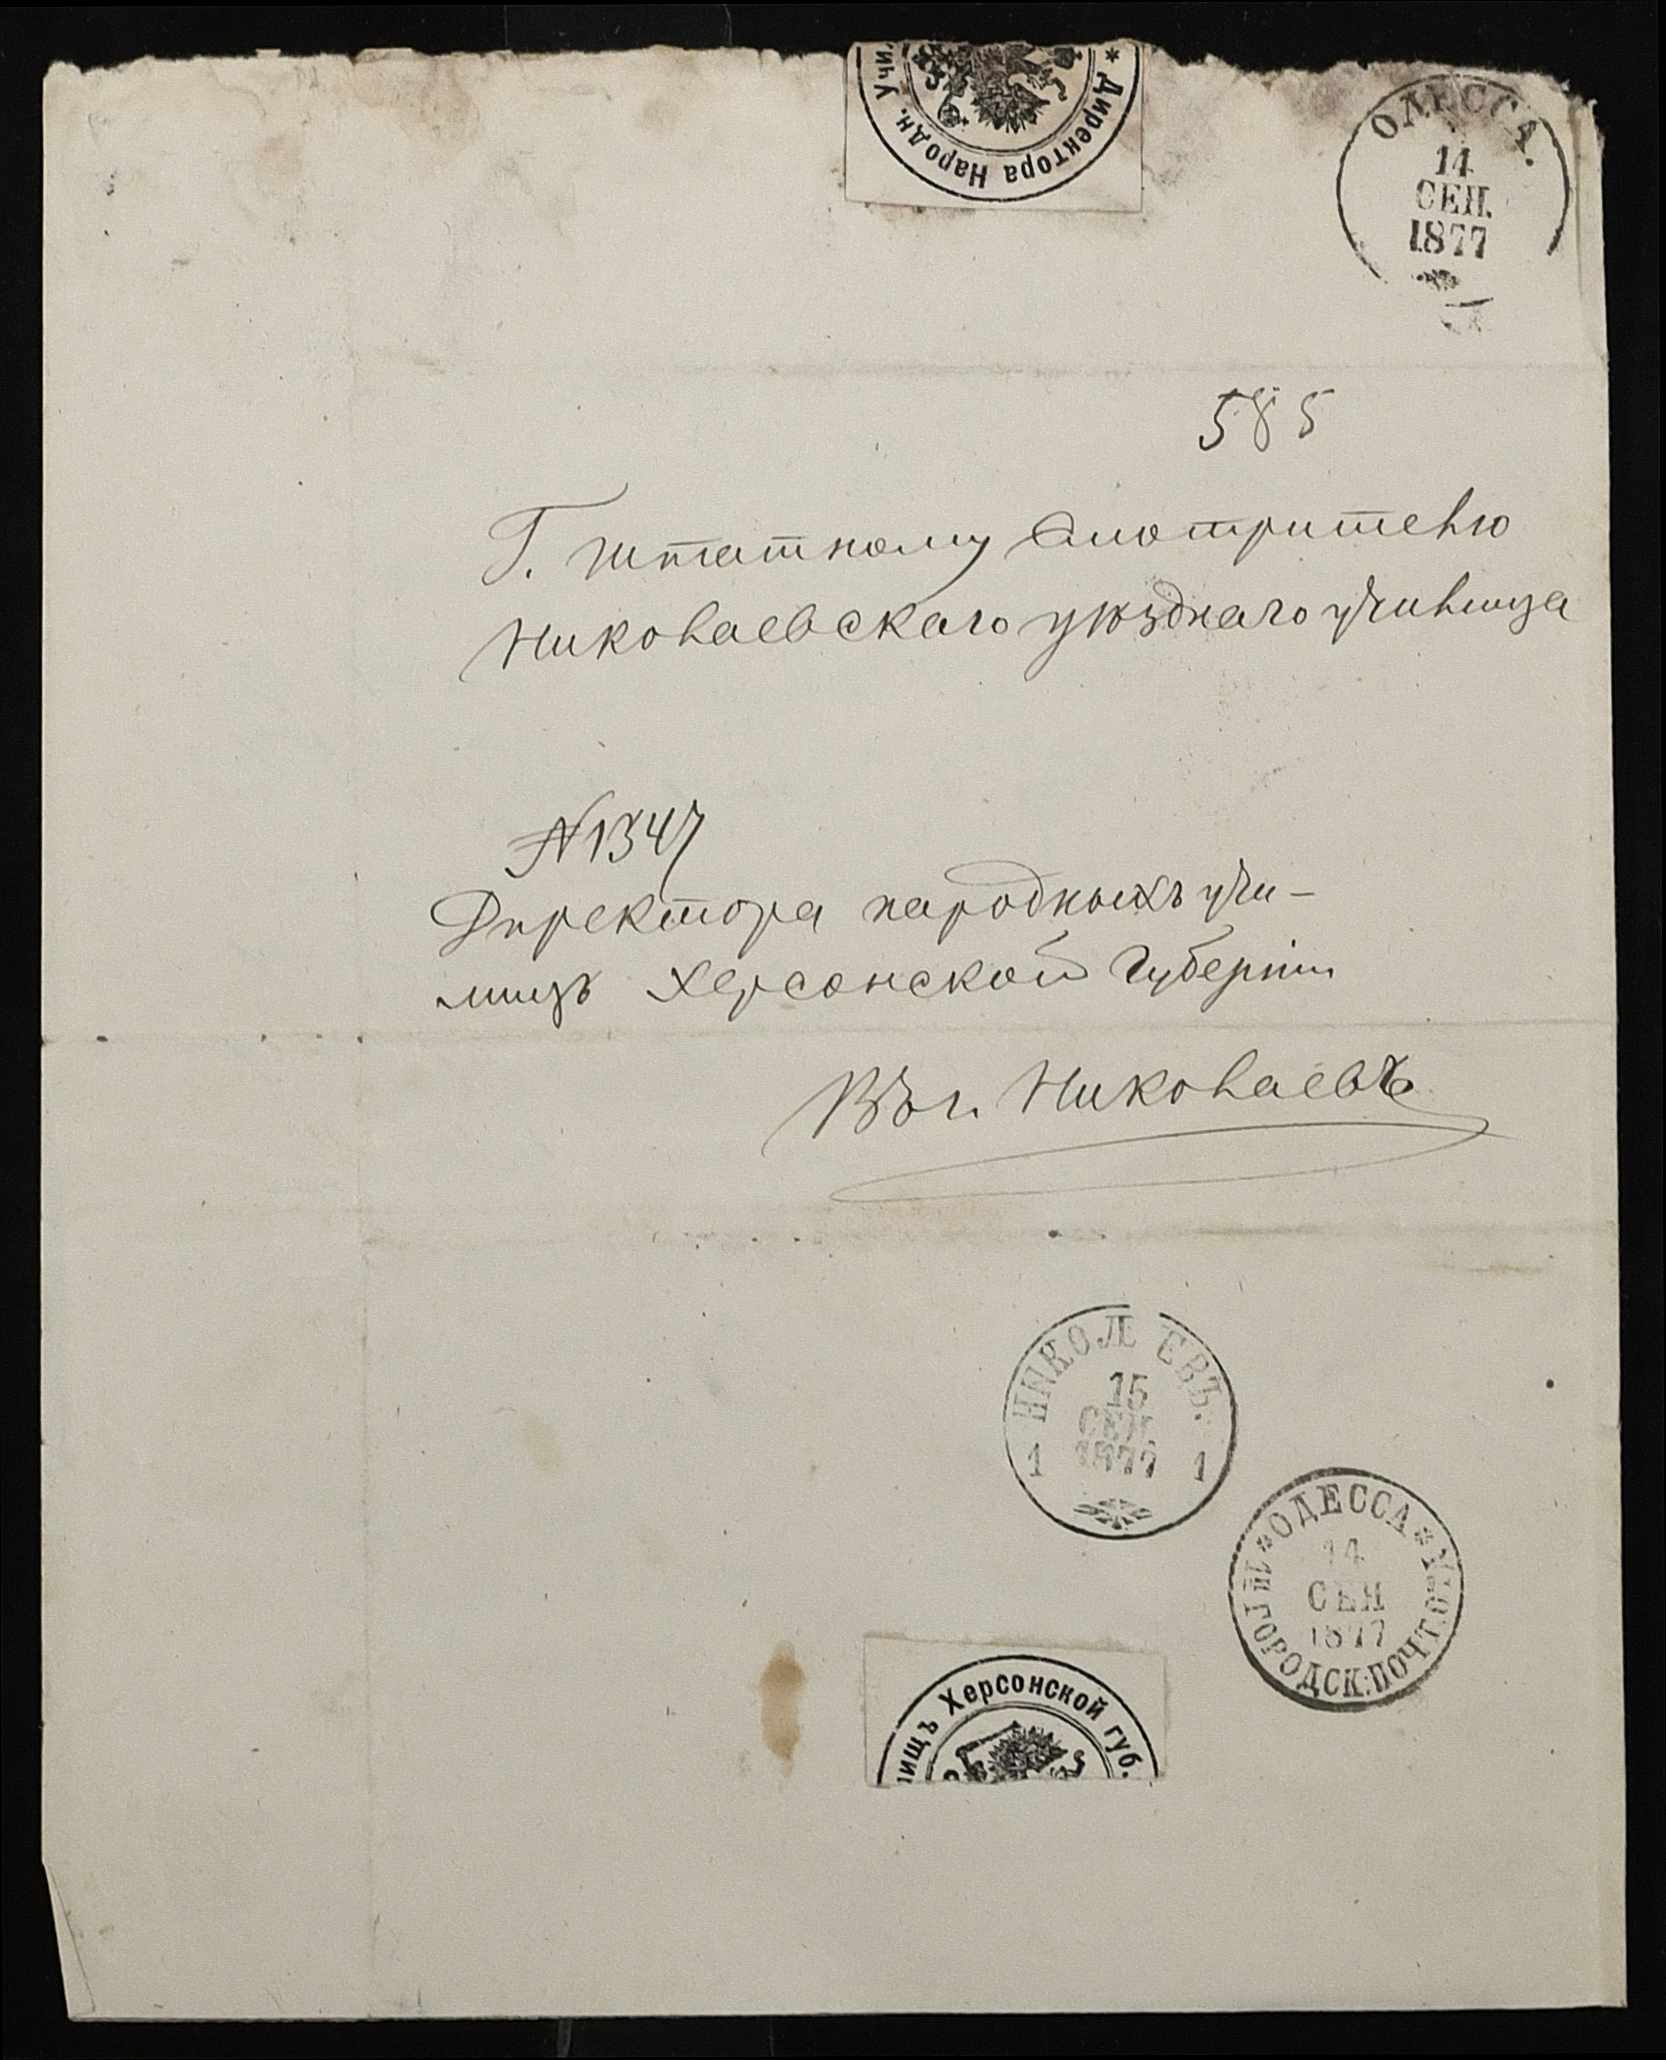 * Директора Народн. Учи
ОДЕССА.
14
СЕН.
1877
585
Г. Штатному Смотрителю
Николаевскаго уѣзднаго училища
N 1347
Директора народныхъ учи-
лищъ Херсонской Губерніи
Въ г. Николаевъ
НИКОЛАЕВЪ.
15
СЕН.
1877
1 1
*ОДЕССА*
14
СЕН
1877
ГОРОДСК:ПОЧТ.
лищъ Херсонской губ.